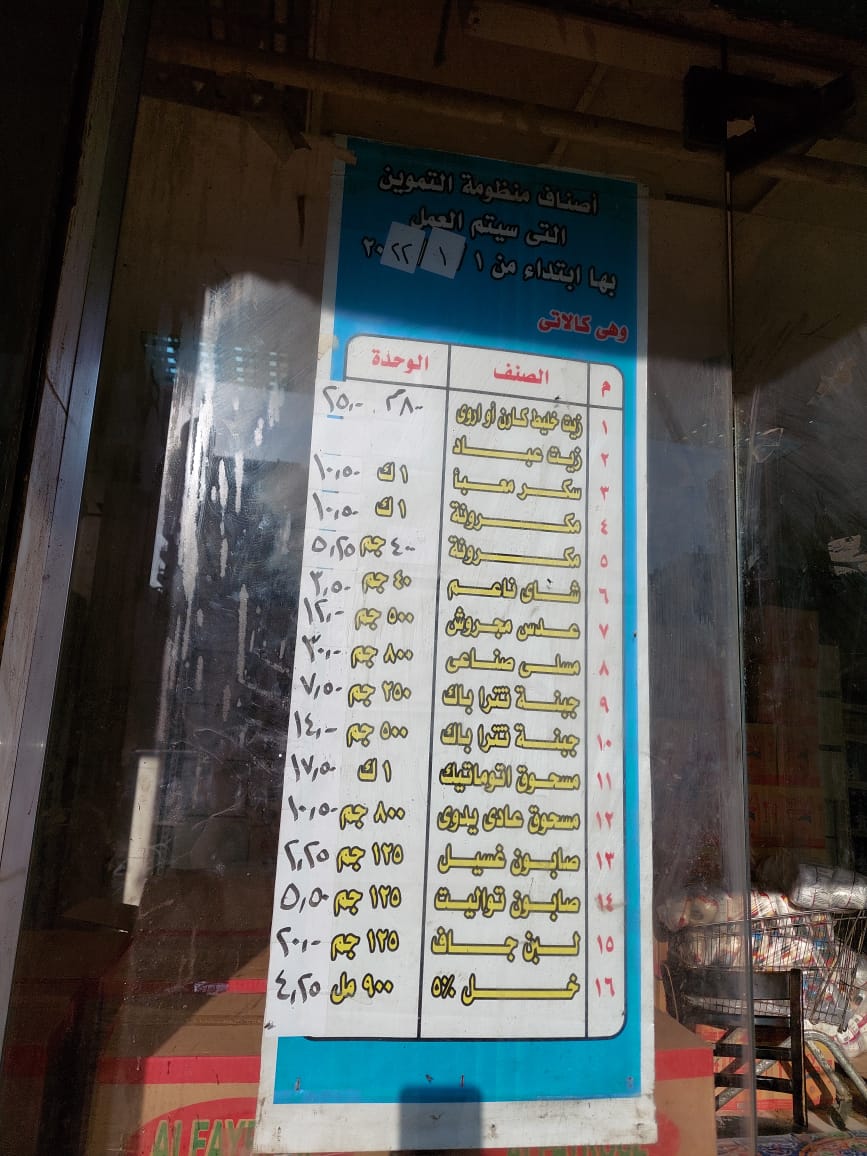 أصناف منظومة التموين
التى سيتم العمل
بها ابتداء من ١ / ١ / ٢٠٢٢
وهى كالاتى
م الصنف الوحدة
١ زيت خليط كارن أو اروى ٨٠٠ ٢٥,٠٠
٢ زيت عباد
٣ سكر معبأ ١ ك ١٠,٥٠
٤ مكرونة ١ ك ١٠,٥٠
٥ مكرونة ٤٠٠ جم ٥,٢٥
٦ شاى ناعم ٤٠ جم ٣,٥٠
٧ عدس مجروش ٥٠٠ جم ١٢,٠٠
٨ مسلى صناعى ٨٠٠ جم ٣٠,٠٠
٩ جبنة تترا باك ٢٥٠ جم ٧,٥٠
١٠ جبنة تترا باك ٥٠٠ جم ١٤,٠٠
١١ مسحوق اتوماتيك ١ ك ١٧,٥٠
١٢ مسحوق عادى يدوى ٨٠٠ جم ١٠,٥٠
١٣ صابون غسيل ١٢٥ جم ٢,٢٥
١٤ صابون تواليت ١٢٥ جم ٥,٥٠
١٥ لبن جاف ١٢٥ جم ٢٠,٠٠
١٦ خل ٥% ٩٠٠ مل ٤,٢٥